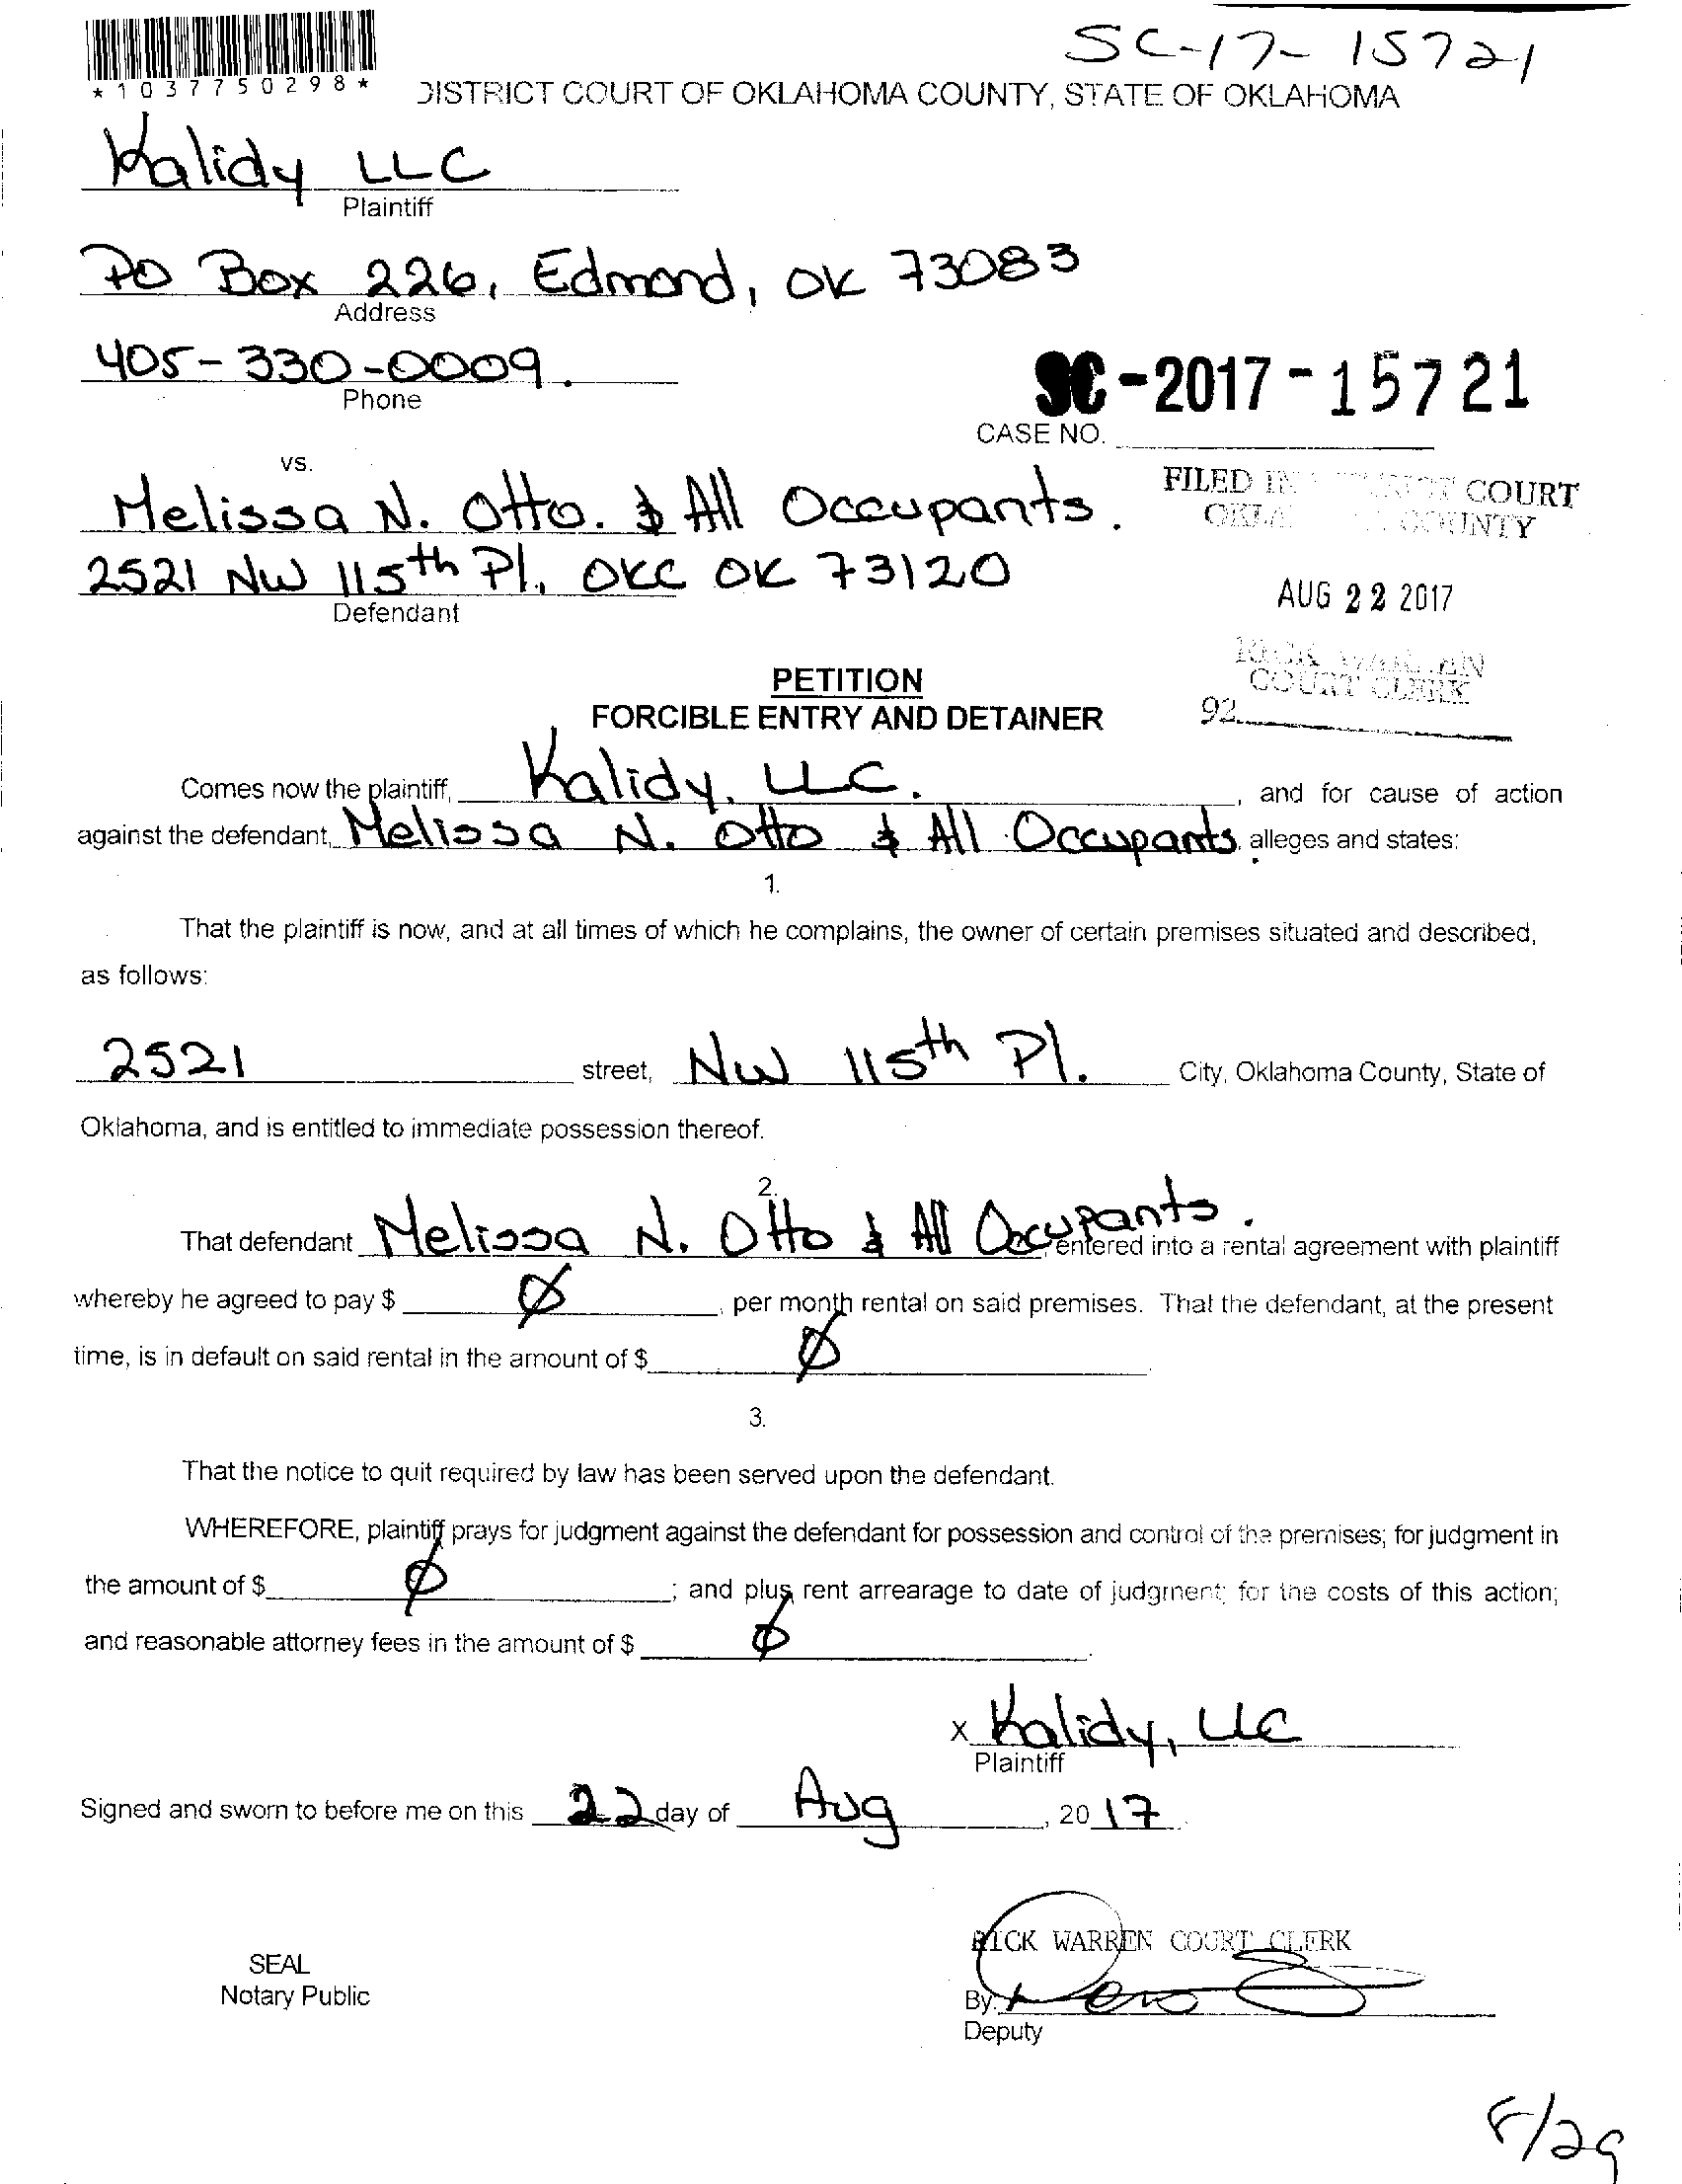 SC-17-15721
*1037750298*
DISTRICT COURT OF OKLAHOMA COUNTY, STATE OF OKLAHOMA
Kalidy LLC
Plaintiff
PO Box 226, Edmond, OK 73083
Address
405-330-0009.
Phone
SC-2017-15721
CASE NO.
vs.
Melissa N. Otto. & All Occupants.
FILED IN COURT
COUNTY
2521 NW 115th Pl., OKC OK 73120
Defendant
AUG 22 2017
COURT CLERK
92
PETITION
FORCIBLE ENTRY AND DETAINER
Comes now the plaintiff, Kalidy, LLC. , and for cause of action
against the defendant, Melissa N. Otto & All Occupants, alleges and states:
1.
That the plaintiff is now, and at all times of which he complains, the owner of certain premises situated and described,
as follows:
2521 street, NW 115th Pl. City, Oklahoma County, State of
Oklahoma, and is entitled to immediate possession thereof.
2.
That defendant Melissa N. Otto & All Occupants. , entered into a rental agreement with plaintiff
whereby he agreed to pay $ Ø , per month rental on said premises. That the defendant, at the present
time, is in default on said rental in the amount of $ Ø .
3.
That the notice to quit required by law has been served upon the defendant.
WHEREFORE, plaintiff prays for judgment against the defendant for possession and control of the premises; for judgment in
the amount of $ Ø ; and plus rent arrearage to date of judgment; for the costs of this action;
and reasonable attorney fees in the amount of $ Ø .
x Kalidy, LLC
Plaintiff
Signed and sworn to before me on this 22 day of Aug , 20 17 .
RICK WARREN COURT CLERK
SEAL
Notary Public
By:
Deputy
8/29